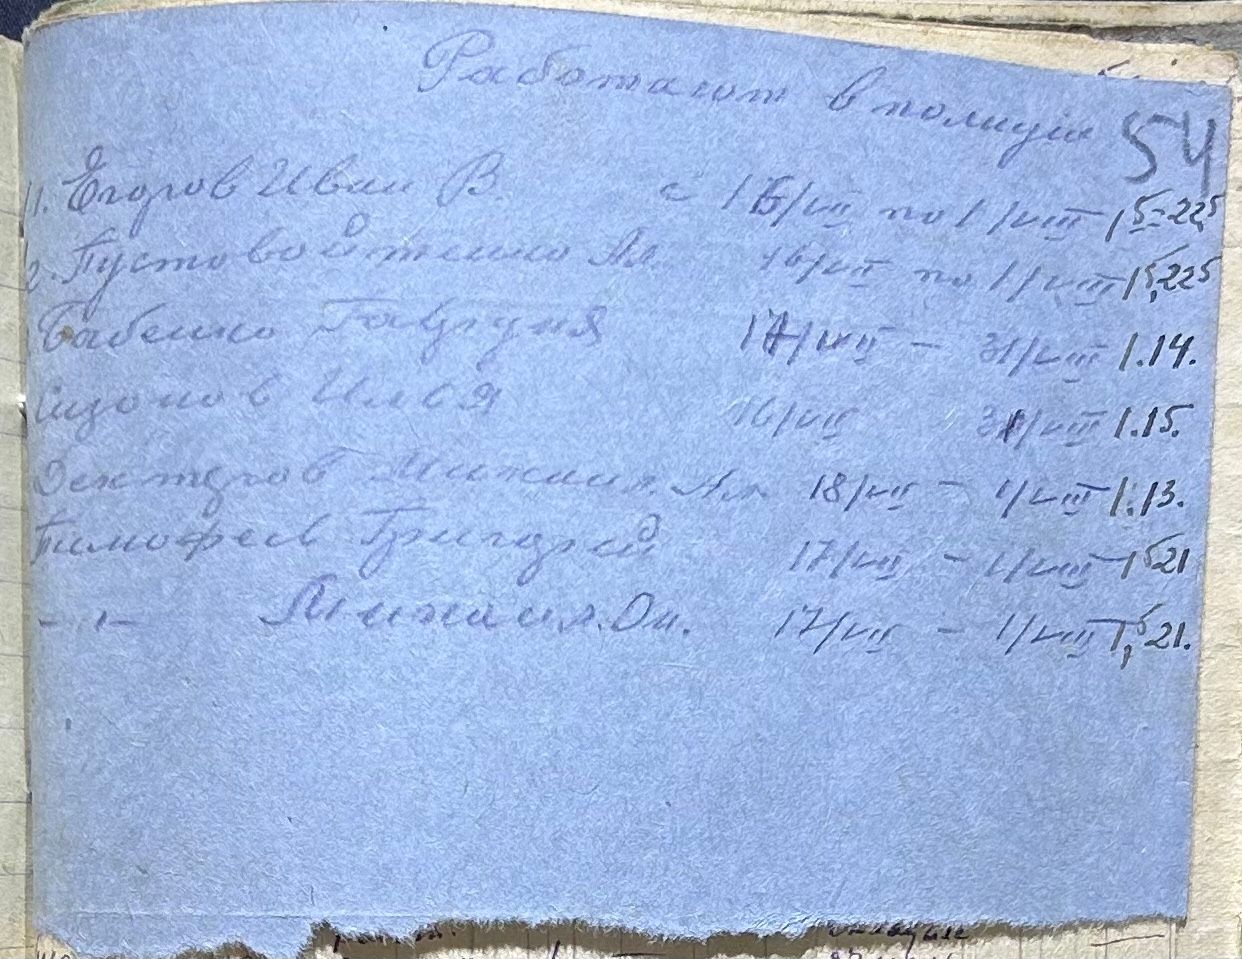 Работают в полиции
54
1. Егоров Иван В. с 15/VII по 1/VIII 15-22,5
2. Пустовойтенко Ал. 16/VII по 1/VIII 15,22 5
Бабенко 17/VII — 31/VIII 1.14.
Сизонов Илья 16/VII 31/VIII 1.15.
Дехтеров Михаил Ал. 18/VII — 1/VIII 1.13.
Тимофеев Григорий 17/VII — 1/VIII — 1 5 21
-"- Михаил. Он. 17/VII — 1/VIII 1,5 21.